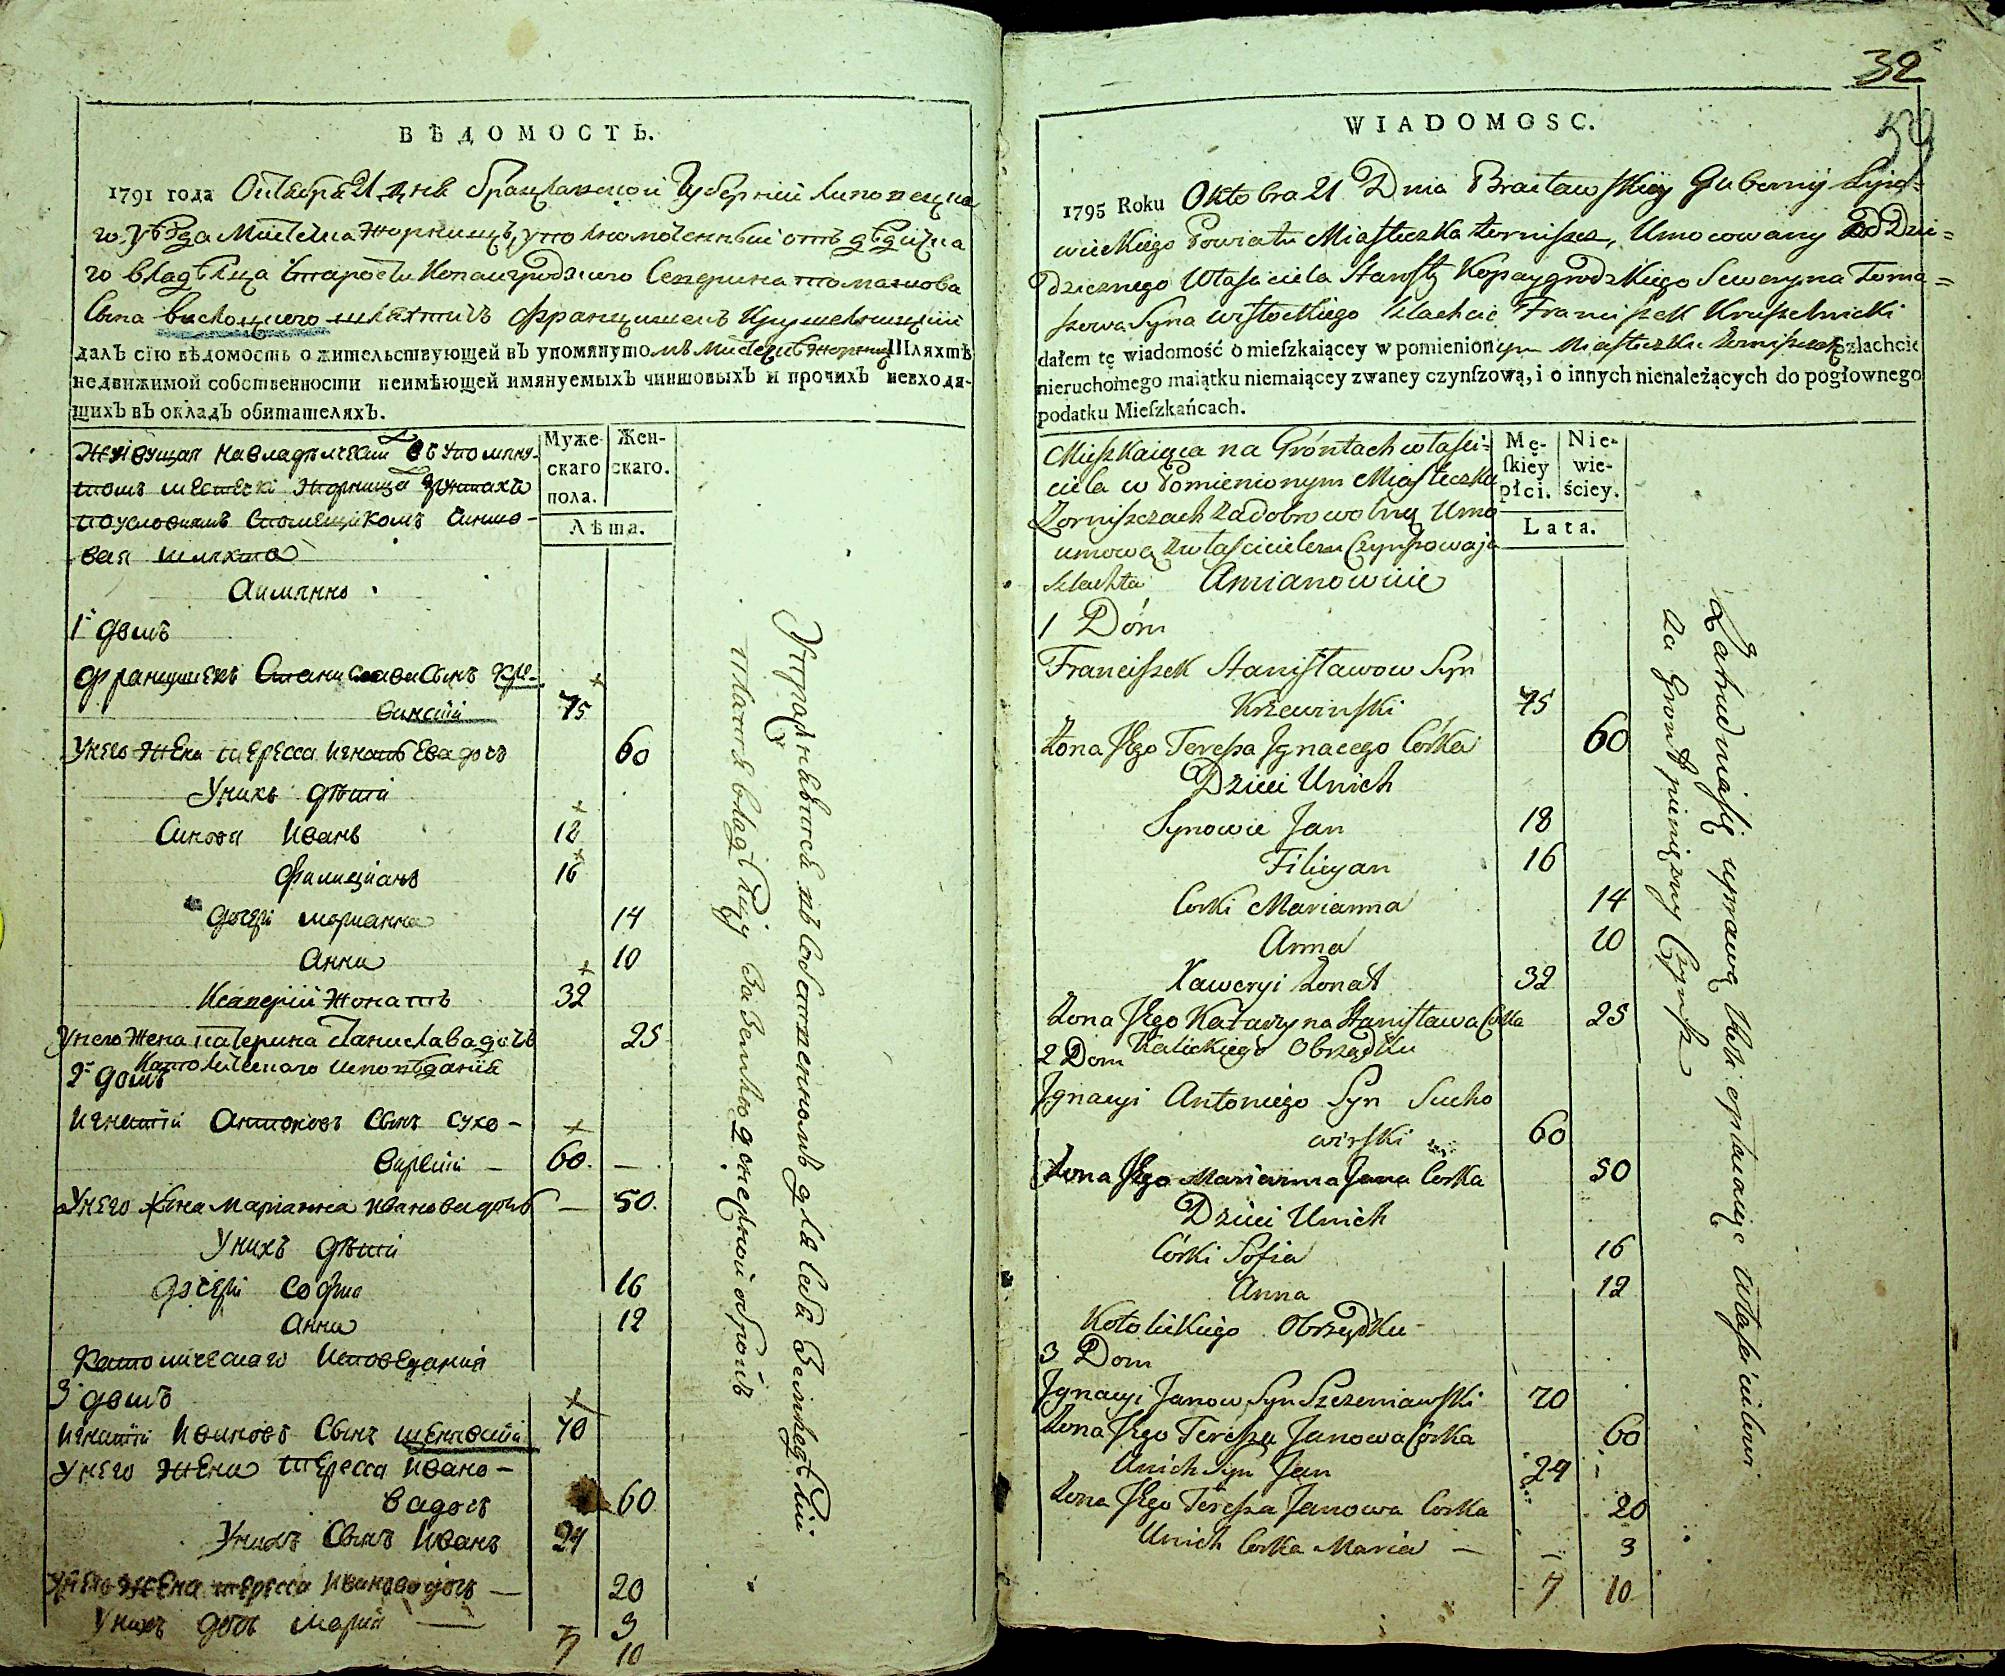 ВѢДОМОСТЬ.
1791 года Октября 21 дня Брацлавской Губерніи Липовецка
го уѣзда Мѣстечка Жорнищъ, уполномоченный отъ дѣдична
го владѣлца Старосты Копайгродзкого Северина томашова
Сына висLоцкого шляхтичъ Францишекъ Крушелницкій
далъ сію вѣдомость о жительствующей въ упомянутомъ Мѣстечкѣ Жорнищ Шляхтѣ
недвижимой собственности неимѣющей имянуемыхъ чиншовыхъ и прочихъ невходя-
щихъ въ окладъ обитателяхъ.
Муже-
скаго
пола.
Жен-
скаго.
Лѣта.
вая шляхта
Аимянно
1й домъ
Францишекъ Станиславовъ Сынъ Крже-
винскій 75
Унего Жена тересса игнатьева дочь 60
Унихъ дѣти
Синовя Иванъ 18
Фелиціанъ 16
дочери марианна 14
Анна 10
Ксаверій Жонатъ 32
Унего Жена катерина Станиславадочь 25
Католическаго исповѣданія
2й домъ
Игнатій Антоновъ Сынъ Сухо-
вирскій 60. —
Унего Жена Марianна Иванова дочь — 50.
Унихъ дѣти
дочери Софиа 16
Анна 12
Католическаго Исповеданія
3 домъ
Игнатій Ивановъ Сынъ щеневскій 70
Унего Жена Тересса Ивано-
ва дочь 60
Унихъ Сынъ Иванъ 24
Унего Жена тересса Иванова дочь — 20
Унихъ дочь Марія — 3
7 10
Упоражняются въ собственномъ для себя земледѣліи
платя владѣлцу за землю денежной оброкъ
32
59
WIADOMOSC.
1795 Roku Oktobra 21 Dnia Bracławskiey Gubernij Lipo-
wieckiego Powiatu Miasteczka Żornisz, Umocowany od Dzie=
dzicznego Własciciela Starosty Kopaygrodzkiego Seweryna Toma=
szowa Syna wisłockiego Szlachcic Franciszek Kruszelnicki
dałem tę wiadomość o mieſzkaiącey w pomienionym Miasteczku Żorniszczach Szlachcie
nieruchomego maiątku niemaiącey zwaney czynſzową, i o innych nienależących do pogłownego
podatku Mieſzkańcach.
Mieszkaiąca na Gróntach własci-
ciela w Pomienionym Miasteczku
Żorniszczach za dobrowolną Umo
umową z własicielem Czynszowaja
szlachta Amianowicie
Mę-
ſkiey
płci.
Nie-
wie-
ściey.
Lata.
1 Dóm
Franciszek Stanisławow Syn
Krzewinski 75
Żona Jego Teressa Jgnacego Córka 60
Dzieci Unich
Synowie Jan 18
Filicyan 16
Corki Marianna 14
Anna 10
Xaweryi Żonat 32
Żona Jego Katarzyna Stanisława Corka 25
Katolickiego Obrządku
2 Dom
Jgnacyi Antoniego Syn Sucho
wirski 60
Żona Jego Marianna Jana Corka 50
Dzieci Unich
Córki Sofia 16
Anna 12
Katolickiego Obrządku
3 Dom
Jgnacyi Janow Syn Szczeniawski 70
Żona Jego Teressa Janowa Corka 60
Unich Syn Jan 24
Żona Jego Teressa Janowa Corka 20
Unich Corka Maria — 3
7 10
Zatrudniaiąsię uprawą Roli opłacaiąc Właścicielowi
za Gront pieniężny Czynsz